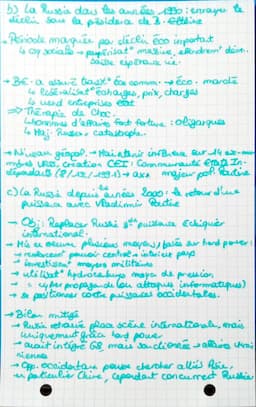 b) La Russie dans les années 1990 : enrayer le
déclin sous la présidence de B. Eltsine
→ Période marquée par déclin éco important
↳ cq sociales → paupérisat° massive, effondremt dém.
baisse espérance vie.
→ B.E. a assuré transit° éco comm. → éco. marché
↳ libéralisat° échanges, prix, charges
↳ vend entreprises état
⇒ Thérapie de choc.
↳ hommes d'affaires font fortune : oligarques
↳ Maj. Russes catastrophe.
→ Niveau géopol. → Maintenir influence sur 14 ex-mem
mbres URSS. Création CEI : Communauté États In-
dépendants (8/12/1991) → axe majeur pol. Poutine
c) La Russie depuis années 2000 : le retour d'une
puissance avec Vladimir Poutine
→ Obj : Replacer Russie puissance échiquier
international.
→ Mis en oeuvre plusieurs moyens, basés sur hard power :
→ renforcemt pouvoir central à intérieur pays
→ investissemt moyens militaires
→ utilisat° hydrocarbures moyen de pression
→ cyberpropagande (ou attaques informatiques)
→ se positionner contre puissances occidentales.
→ Bilan mitigé
→ Russie retrouve place scène internationale, mais
uniquement grâce hard power
→ avait intégré G8, mais sanctionnée → affaire Ukrai
nienne
→ Opp. occidentaux pousse chercher alliés Asie,
en particulier Chine, cependant concurrect Russie